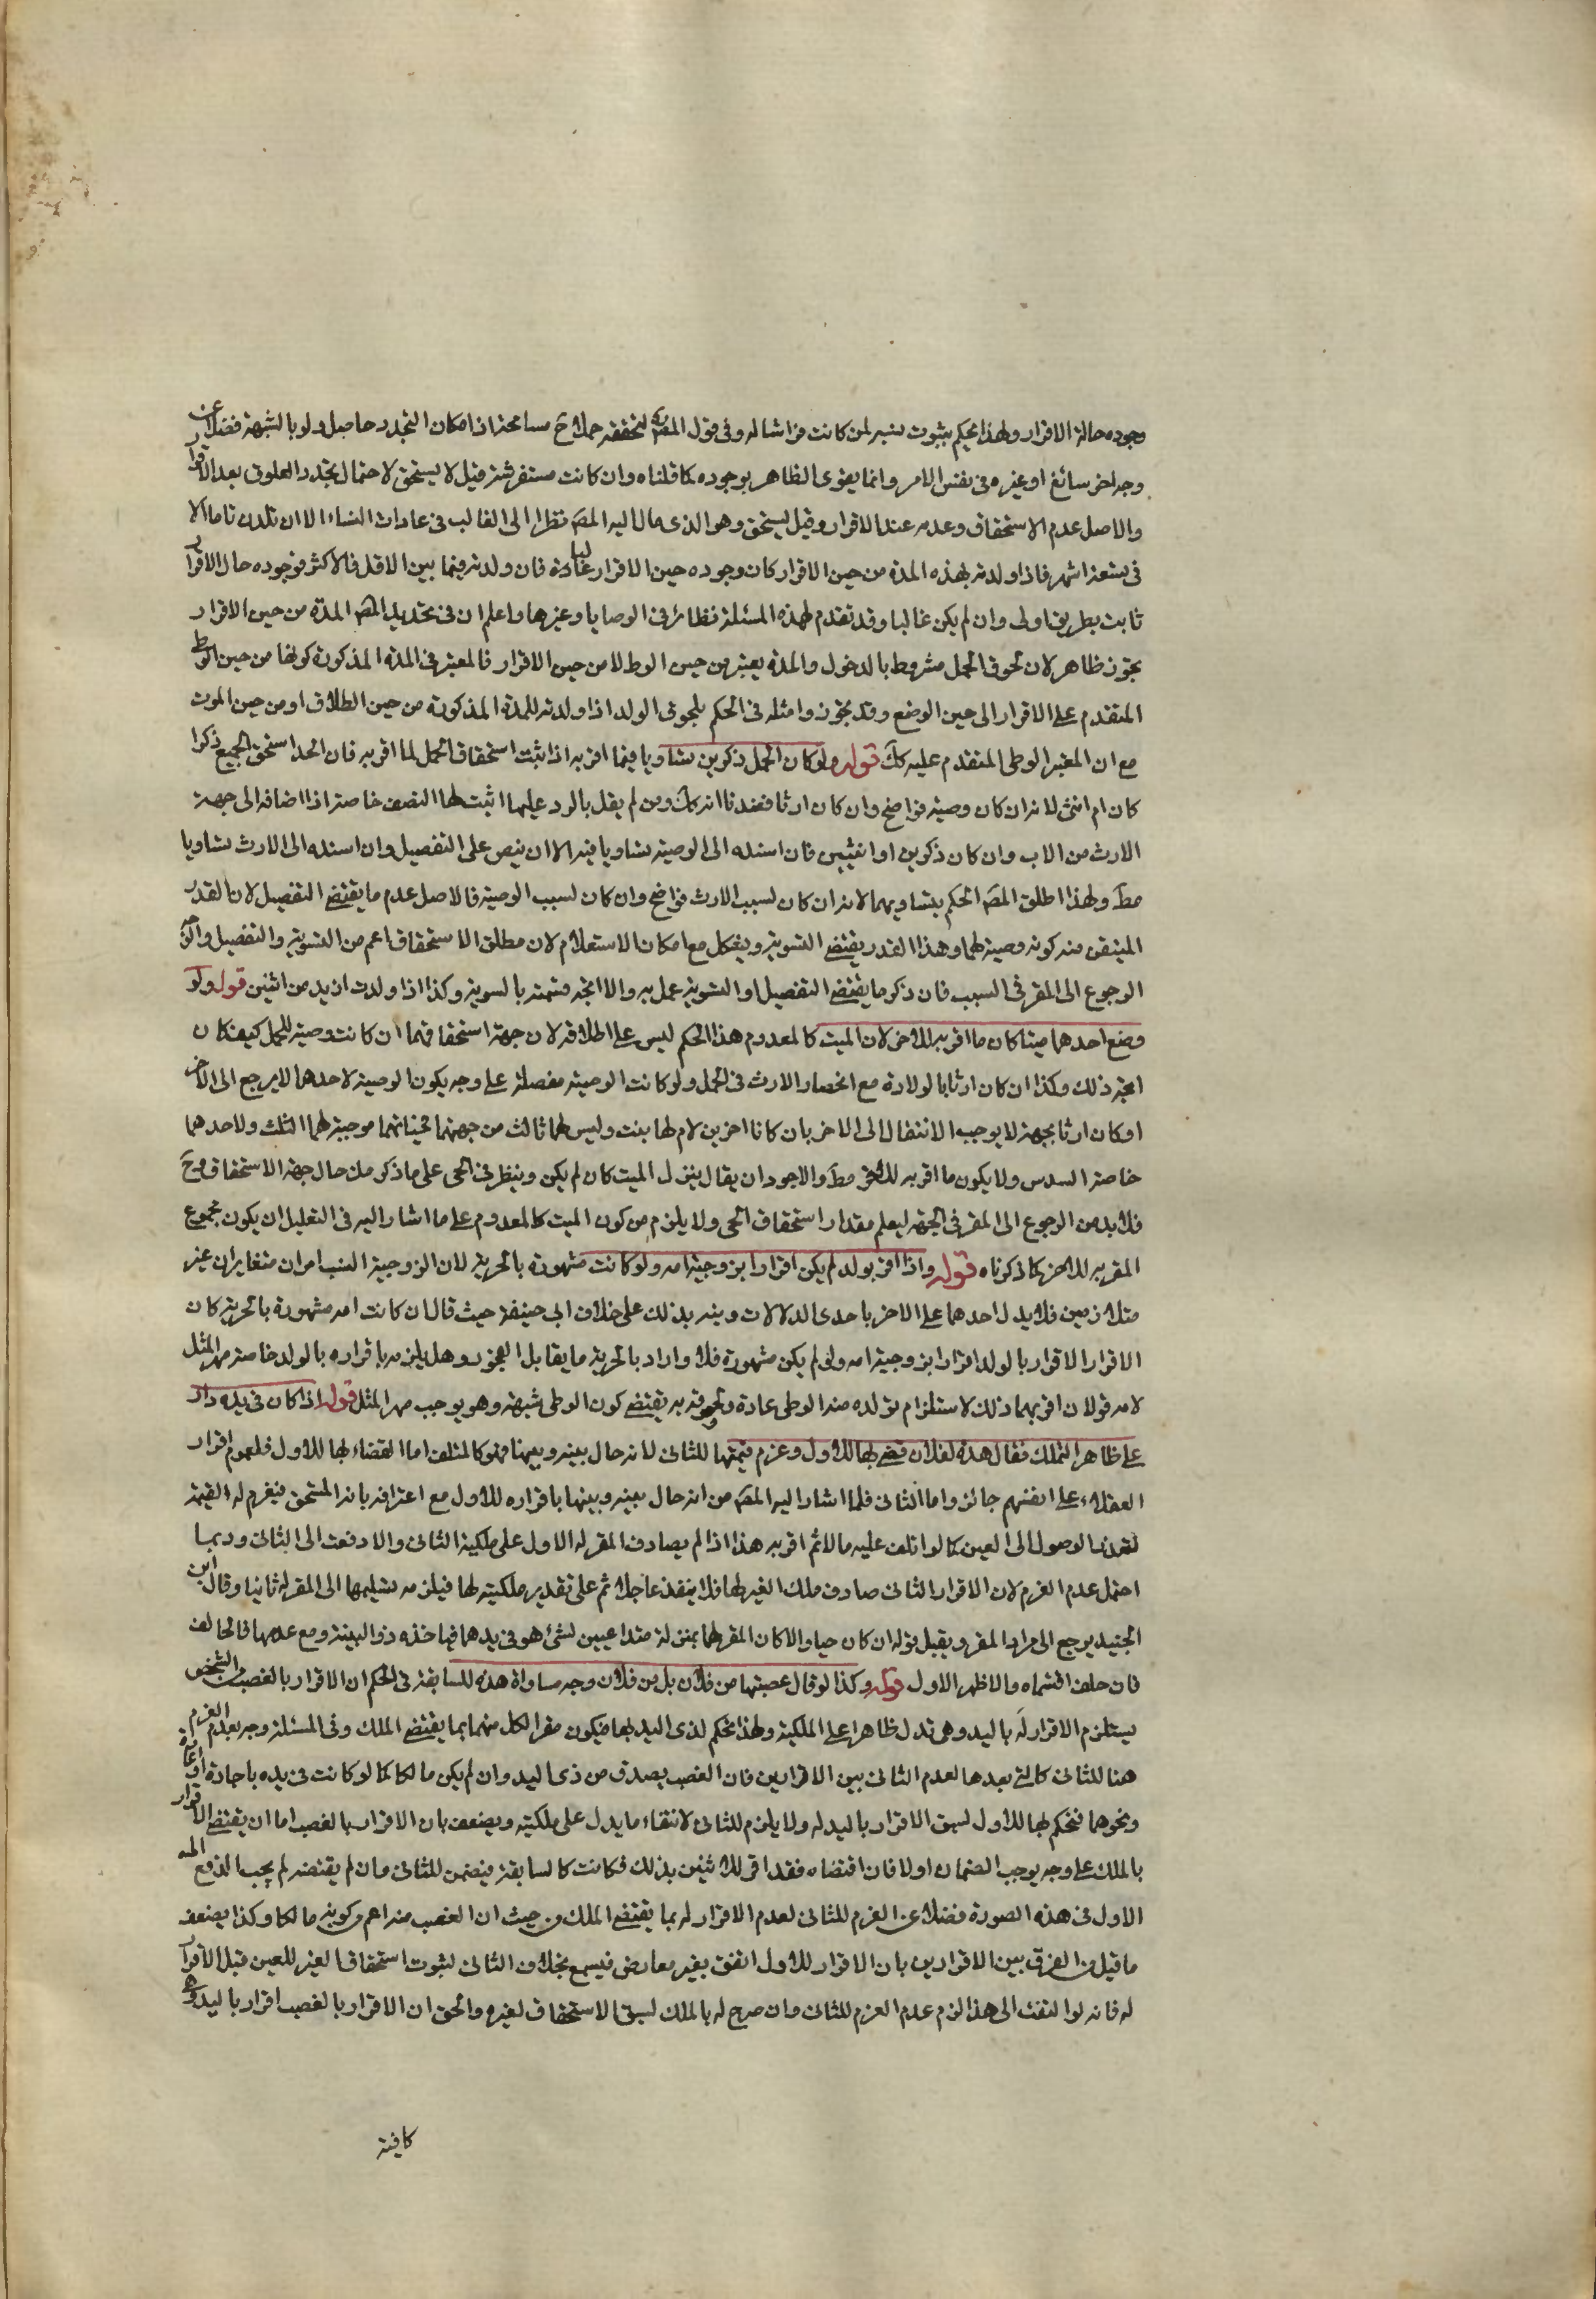 وجوده حالة الاقرار ولهذا يحكم بثبوت نسبه لمن كانت فراشا له وفى قول المصَ لتحققه حملا حَ مسامحة اذ امكان التجدد حاصل ولو بالشبهة فضلا عن
وجه اخر سائغ او غيره فى نفس الامر وانما يقوى الظاهر بوجوده كما قلناه وان كانت مستفرشة قيل لا يستحق لاحتمال تجدد العلوق بعد الاقرار
والاصل عدم الاستحقاق وعدمه عند الاقرار وقيل يستحق وهو الذى مال اليه المصَ نظرا الى الغالب فى عادات النساء الا ان تلدن تاما الا
فى تسعة اشهر فاذا ولدته بهذه المدة من حين الاقرار كان وجوده حين الاقرار غالبا عادة فان ولدته فيما بين الاقل فالاكثر فوجوده حال الاقرار
ثابت بطريق اولى وان لم يكن غالبا وقد تقدم لهذه المسئلة نظائر فى الوصايا وغيرها واعلم ان فى تحديد المصَ المدة من حين الاقرار
تجوزا ظاهر لان لحوق الحمل مشروط بالدخول والمدة يعتبر من حين الوطى لا من حين الاقرار فالمعتبر فى المدة المذكورة كونها من حين الوطى
المتقدم على الاقرار الى حين الوضع وقد تجوزوا مثله فى الحكم بلحوق الولد اذا ولدته للمدة المذكورة من حين الطلاق او من حين الموت
مع ان المعتبر الوطى المتقدم عليه كَكَ قوله ولو كان الحمل ذكرين تساويا فيما اقر به اذا ثبت استحقاق الحمل لما اقر به فان اتحد استحق الجميع ذكرا
كان ام انثى لانه ان كان وصية فواضح وان كان ارثا فعندنا انه كَكَ ومن لم يقل بالرد عليها اثبت لها النصف خاصة اذا اضافه الى جهة
الارث من الاب وان كان ذكرين او انثيين فان اسنده الى الوصية تساويا فيه الا ان ينص على التفصيل وان اسنده الى الارث تساويا
مطَ ولهذا اطلق المصَ الحكم بتساويهما لانه ان كان لسبب الارث فواضح وان كان لسبب الوصية فالاصل عدم ما يقتضى التفضيل لان القدر
المتيقن منه كونه وصية لهما وهذا القدر يقتضى التسوية ويشكل مع امكان الاستعلام لان مطلق الاستحقاق اعم من التسوية والتفضيل والاقوى
الرجوع الى المقر فى السبب فان ذكر ما يقتضى التفضيل او التسوية عمل به والا اتجه قسمته بالسوية وكذا اذا ولدت ازيد من اثنين قوله ولو
وضع احدهما ميتا كان ما اقر به للاخر لان الميت كالمعدوم هذا الحكم ليس على اطلاقه لان جهة استحقاقهما ان كانت وصية للحمل كيف كان
اتجه ذلك وكذا ان كان ارثا بالولادة مع انحصار الارث فى الحمل ولو كانت الوصية مفصلة على وجه يكون الوصية لاحدهما لا يرجع الى الاخر
او كان ارثا بجهة لا يوجب الانتقال الى الاخر بان كانا اخوين لام لها بنت وليس لهما ثالث من جهتها فحياتهما موجبة لهما الثلث ولاحدهما
خاصة السدس ولا يكون ما اقر به للاخر مطَ والاجود ان يقال ينزل الميت كان لم يكن وينظر فى الحى على ما ذكر من حال جهة الاستحقاق وحَ
فلابد من الرجوع الى المقر فى الجهة ليعلم مقدار استحقاق الحى ولا يلزم من كون الميت كالمعدوم على ما اشار اليه فى التعليل ان يكون مجموع
المقر به للاخر كما ذكرناه قوله واذا اقر بولد لم يكن اقرارا بزوجية امه ولو كانت مشهورة بالحرية لان الزوجية النسب امران متغايران غير
متلازمين فلا يدل احدهما على الاخر باحدى الدلالات ونبه بذلك على خلاف ابى حنيفة حيث قال ان كانت امه مشهورة بالحرية كان
الاقرار الاقرار بالولد اقرارا بزوجية امه وان لم يكن مشهورة فلا واراد بالحرية ما يقابل الفجور وهل يلزمه باقراره بالولد خاصة مهر المثل
لامه قولان اقربهما ذلك لاستلزام تولده منه الوطى عادة ولحوقه به يقتضى كون الوطى شبهة وهو يوجب مهر المثل قوله اذا كان فى يده دار
على ظاهر التملك فقال هذه لفلان بل لفلان قضى بها للاول وغرم قيمتها للثانى لانه حال بينه وبينها فهو كالمتلف اما القضاء بها للاول فلعموم اقرار
العقلاء على انفسهم جائز واما الثانى فلما اشار اليه المصَ من انه حال بينه وبينها باقراره للاول مع اعترافه بانه المستحق فيغرم له القيمة
لتعذر الوصول الى العين كما لو اتلف عليه مالا ثم اقر به هذا اذا لم يصادق المقر له الاول على ملكية الثانى والا دفعت الى الثانى وربما
احتمل عدم الغرم لان الاقرار الثانى صادف ملك الغير لها فلا ينفذ عاجلا ثم على تقدير ملكيته لها فيلزمه تسليمها الى المقر له ثانيا وقال ابن
الجنيد يرجع الى مراد المقر ويقبل قوله ان كان حيا والا كان المقر لهما بمنزلة متداعيين لشئ هو فى يدهما فياخذه ذو البينة ومع عدمها فالحالف
فان حلفا اقتسماه والاظهر الاول قوله وكذا لو قال غصبتها من فلان بل من فلان وجه مساواة هذه للسابقة فى الحكم ان الاقرار بالغصب من الشخص
يستلزم الاقرار له باليد وهى تدل ظاهرا على الملكية ولهذا يحكم لذى اليد بها فيكون مقرا لكل منهما بما يقتضى الملك وفى المسئلة وجه بعدم الغرم
هنا للثانى كالتى بعدها لعدم التنافى بين الاقرارين فان الغصب يصدق من ذى اليد وان لم يكن مالكا كما لو كانت فى يده باجارة او عارة
ونحوهما فيحكم بها للاول لسبق الاقرار باليد له ولا يلزم للثانى لانتفاء ما يدل على ملكيته ويضعف بان الاقرار بالغصب اما ان يقتضى الاقرار
بالملك على وجه يوجب الضمان اولا فان اقتضاه فقد اقر للاثنين بذلك فكانت كالسابقة فيضمن للثانى وان لم يقتضه لم يجب الدفع الى
الاول فى هذه الصورة فضلا عن الغرم للثانى لعدم الاقرار له بما يقتضى الملك من حيث ان الغصب منه اعم من كونه مالكا وكذا يضعف
ما قيل من الفرق بين الاقرارين بان الاقرار للاول اتفق بغير معارض فيسمع بخلاف الثانى لثبوت استحقاق الغير للعين قبل الاقرار
له فانه لو التفت الى هذا لزم عدم الغرم للثانى وان صرح له بالملك لسبق الاستحقاق لغيره والحق ان الاقرار بالغصب اقرار باليد وهى
كافية